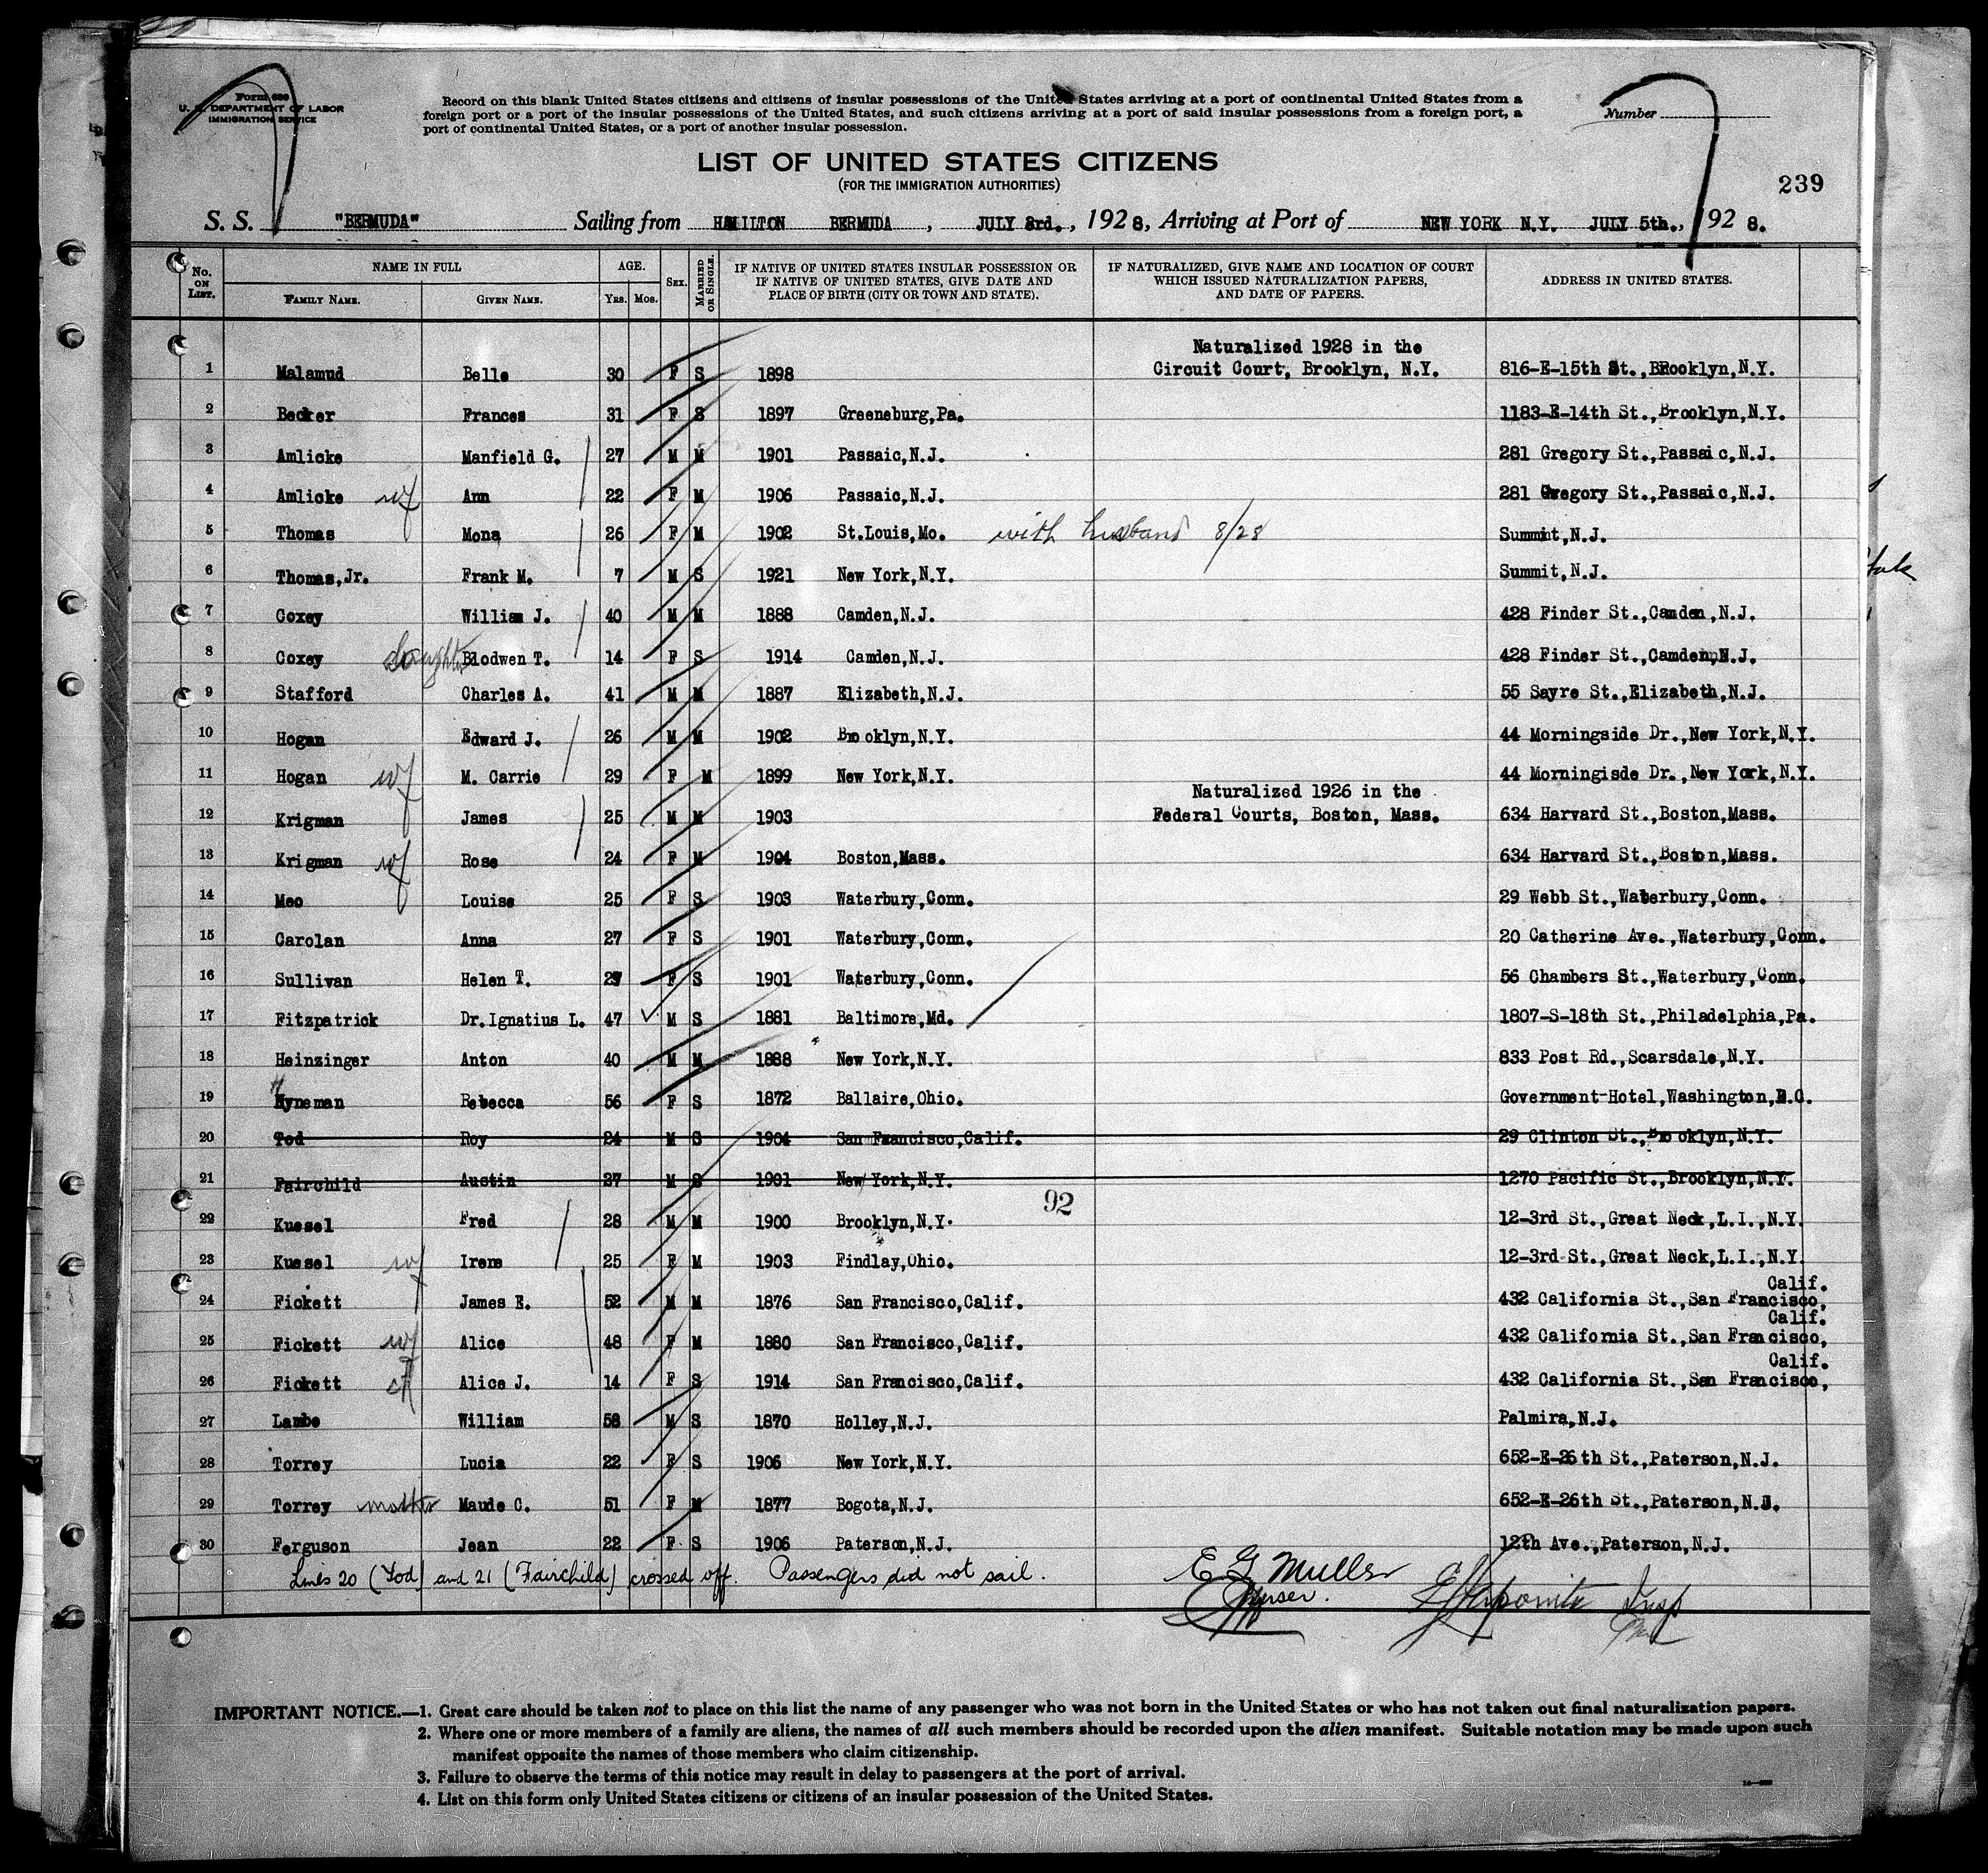 Form 630
U. S. DEPARTMENT OF LABOR
IMMIGRATION SERVICE
Record on this blank United States citizens and citizens of insular possessions of the United States arriving at a port of continental United States from a
foreign port or a port of the insular possessions of the United States, and such citizens arriving at a port of said insular possessions from a foreign port, a
port of continental United States, or a port of another insular possession.
Number
LIST OF UNITED STATES CITIZENS
(FOR THE IMMIGRATION AUTHORITIES)
239
S. S. "BERMUDA" Sailing from HAMILTON BERMUDA , JULY 3rd. , 192 8, Arriving at Port of NEW YORK N.Y. JULY 5th., 192 8.
No. ON LIST. NAME IN FULL FAMILY NAME. GIVEN NAME. AGE. Yrs. Mos. SEX. MARRIED OR SINGLE. IF NATIVE OF UNITED STATES INSULAR POSSESSION OR IF NATIVE OF UNITED STATES, GIVE DATE AND PLACE OF BIRTH (CITY OR TOWN AND STATE). IF NATURALIZED, GIVE NAME AND LOCATION OF COURT WHICH ISSUED NATURALIZATION PAPERS, AND DATE OF PAPERS. ADDRESS IN UNITED STATES.
Naturalized 1928 in the
1 Malamud Belle 30 F S 1898 Circuit Court, Brooklyn, N.Y. 816-E-15th St.,BRooklyn,N.Y.
2 Becker Frances 31 F S 1897 Greensburg,Pa. 1183-E-14th St.,Brooklyn,N.Y.
3 Amlicke Manfield G. 27 M M 1901 Passaic,N.J. 281 Gregory St.,Passaic,N.J.
4 Amlicke wf Ann 22 F M 1906 Passaic,N.J. 281 Gregory St.,Passaic,N.J.
5 Thomas Mona 26 F M 1902 St.Louis,Mo. with husband 8/28 Summit,N.J.
6 Thomas,Jr. Frank M. 7 M S 1921 New York,N.Y. Summit,N.J.
7 Coxey William J. 40 M M 1888 Camden,N.J. 428 Finder St.,Camden,N.J.
8 Coxey daughter Blodwen T. 14 F S 1914 Camden,N.J. 428 Finder St.,Camden,N.J.
9 Stafford Charles A. 41 M M 1887 Elizabeth,N.J. 55 Sayre St.,Elizabeth,N.J.
10 Hogan Edward J. 26 M M 1902 Brooklyn,N.Y. 44 Morningside Dr.,New York,N.Y.
11 Hogan wf M. Carrie 29 F M 1899 New York,N.Y. 44 Morningisde Dr.,New York,N.Y.
Naturalized 1926 in the
12 Krigman James 25 M M 1903 Federal Courts, Boston, Mass. 634 Harvard St.,Boston,Mass.
13 Krigman wf Rose 24 F M 1904 Boston,Mass. 634 Harvard St.,Boston,Mass.
14 Meo Louise 25 F S 1903 Waterbury,Conn. 29 Webb St.,Waterbury,Conn.
15 Carolan Anna 27 F S 1901 Waterbury,Conn. 20 Catherine Ave.,Waterbury,Conn.
16 Sullivan Helen T. 27 F S 1901 Waterbury,Conn. 56 Chambers St.,Waterbury,Conn.
17 Fitzpatrick Dr.Ignatius L. 47 M S 1881 Baltimore,Md. 1807-S-18th St.,Philadelphia,Pa.
18 Heinzinger Anton 40 M M 1888 New York,N.Y. 833 Post Rd.,Scarsdale,N.Y.
19 Hyneman Rebecca 56 F S 1872 Ballaire,Ohio. Government-Hotel,Washington,D.C.
20 Tod Roy 24 M S 1904 San Francisco,Calif. 29 Clinton St.,Brooklyn,N.Y.
21 Fairchild Austin 27 M S 1901 New York,N.Y. 1270 Pacific St.,Brooklyn,N.Y.
92
22 Kuesel Fred 28 M M 1900 Brooklyn,N.Y. 12-3rd St.,Great Neck,L.I.,N.Y.
23 Kuesel wf Irene 25 F M 1903 Findlay,Ohio. 12-3rd St.,Great Neck,L.I.,N.Y.
Calif.
24 Fickett James E. 52 M M 1876 San Francisco,Calif. 432 California St.,San Francisco,
Calif.
25 Fickett wf Alice 48 F M 1880 San Francisco,Calif. 432 California St.,San Francisco,
Calif.
26 Fickett Alice J. 14 F S 1914 San Francisco,Calif. 432 California St.,San Francisco,
27 Lambe William 58 M S 1870 Holley,N.J. Palmira,N.J.
28 Torrey Lucia 22 F S 1906 New York,N.Y. 652-E-26th St.,Paterson,N.J.
29 Torrey mother Maude C. 51 F M 1877 Bogota,N.J. 652-E-26th St.,Paterson,N.J.
30 Ferguson Jean 22 F S 1906 Paterson,N.J. 12th Ave.,Paterson,N.J.
Lines 20 (Tod) and 21 (Fairchild) crossed off. Passengers did not sail. E G Muller
Purser.
IMPORTANT NOTICE.—1. Great care should be taken not to place on this list the name of any passenger who was not born in the United States or who has not taken out final naturalization papers.
2. Where one or more members of a family are aliens, the names of all such members should be recorded upon the alien manifest. Suitable notation may be made upon such
manifest opposite the names of those members who claim citizenship.
3. Failure to observe the terms of this notice may result in delay to passengers at the port of arrival.
4. List on this form only United States citizens or citizens of an insular possession of the United States.